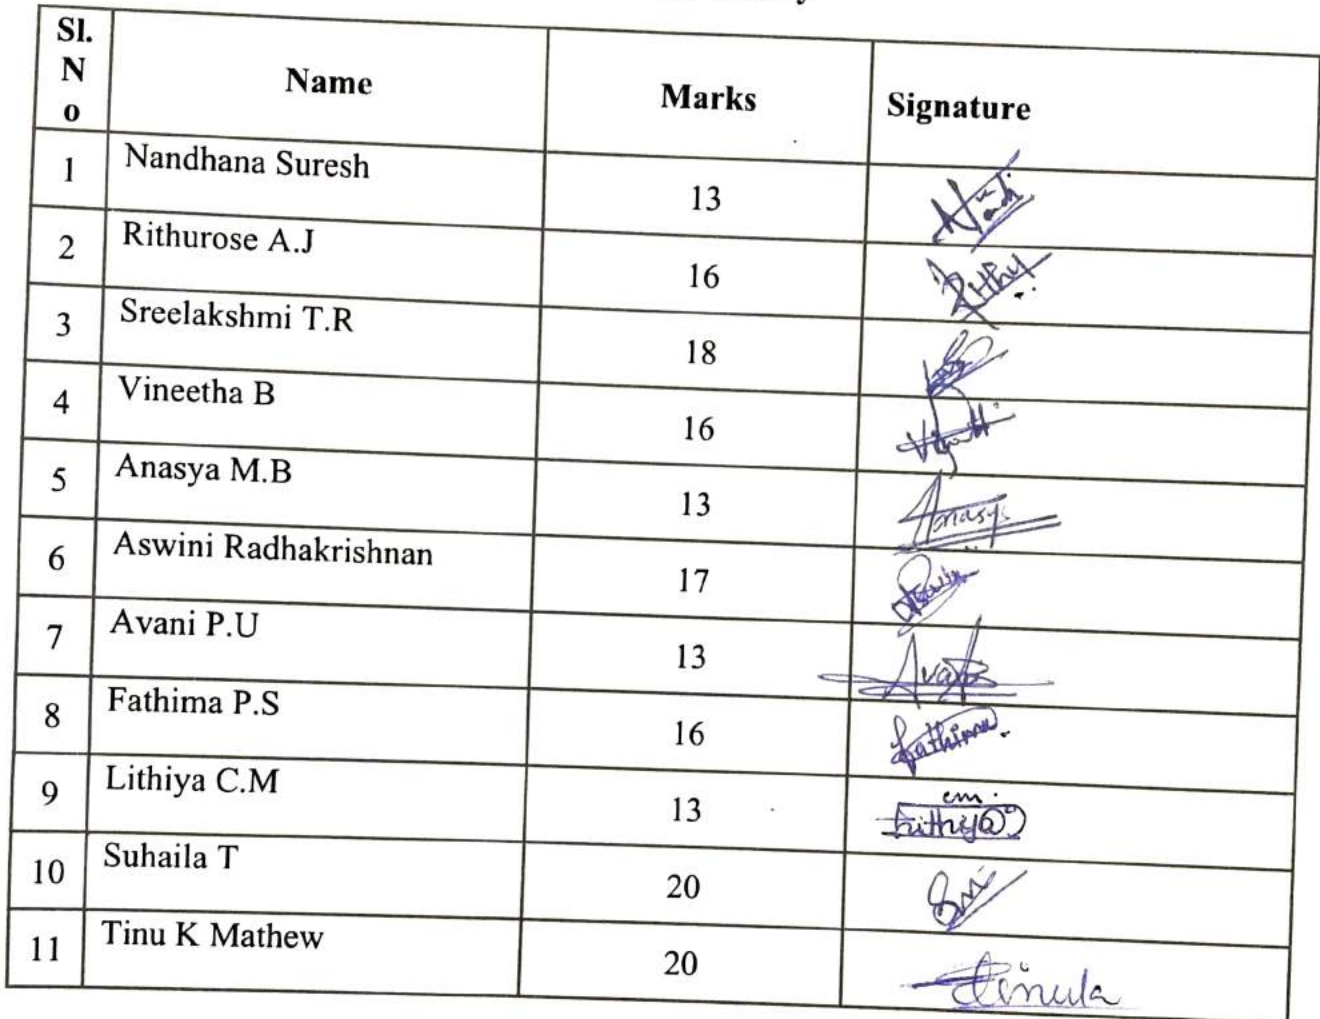 Sl. No Name Marks Signature
1 Nandhana Suresh 13
2 Rithurose A.J 16 Rithy
3 Sreelakshmi T.R 18
4 Vineetha B 16
5 Anasya M.B 13 Anasya
6 Aswini Radhakrishnan 17
7 Avani P.U 13
8 Fathima P.S 16 Fathima
9 Lithiya C.M 13
10 Suhaila T 20
11 Tinu K Mathew 20